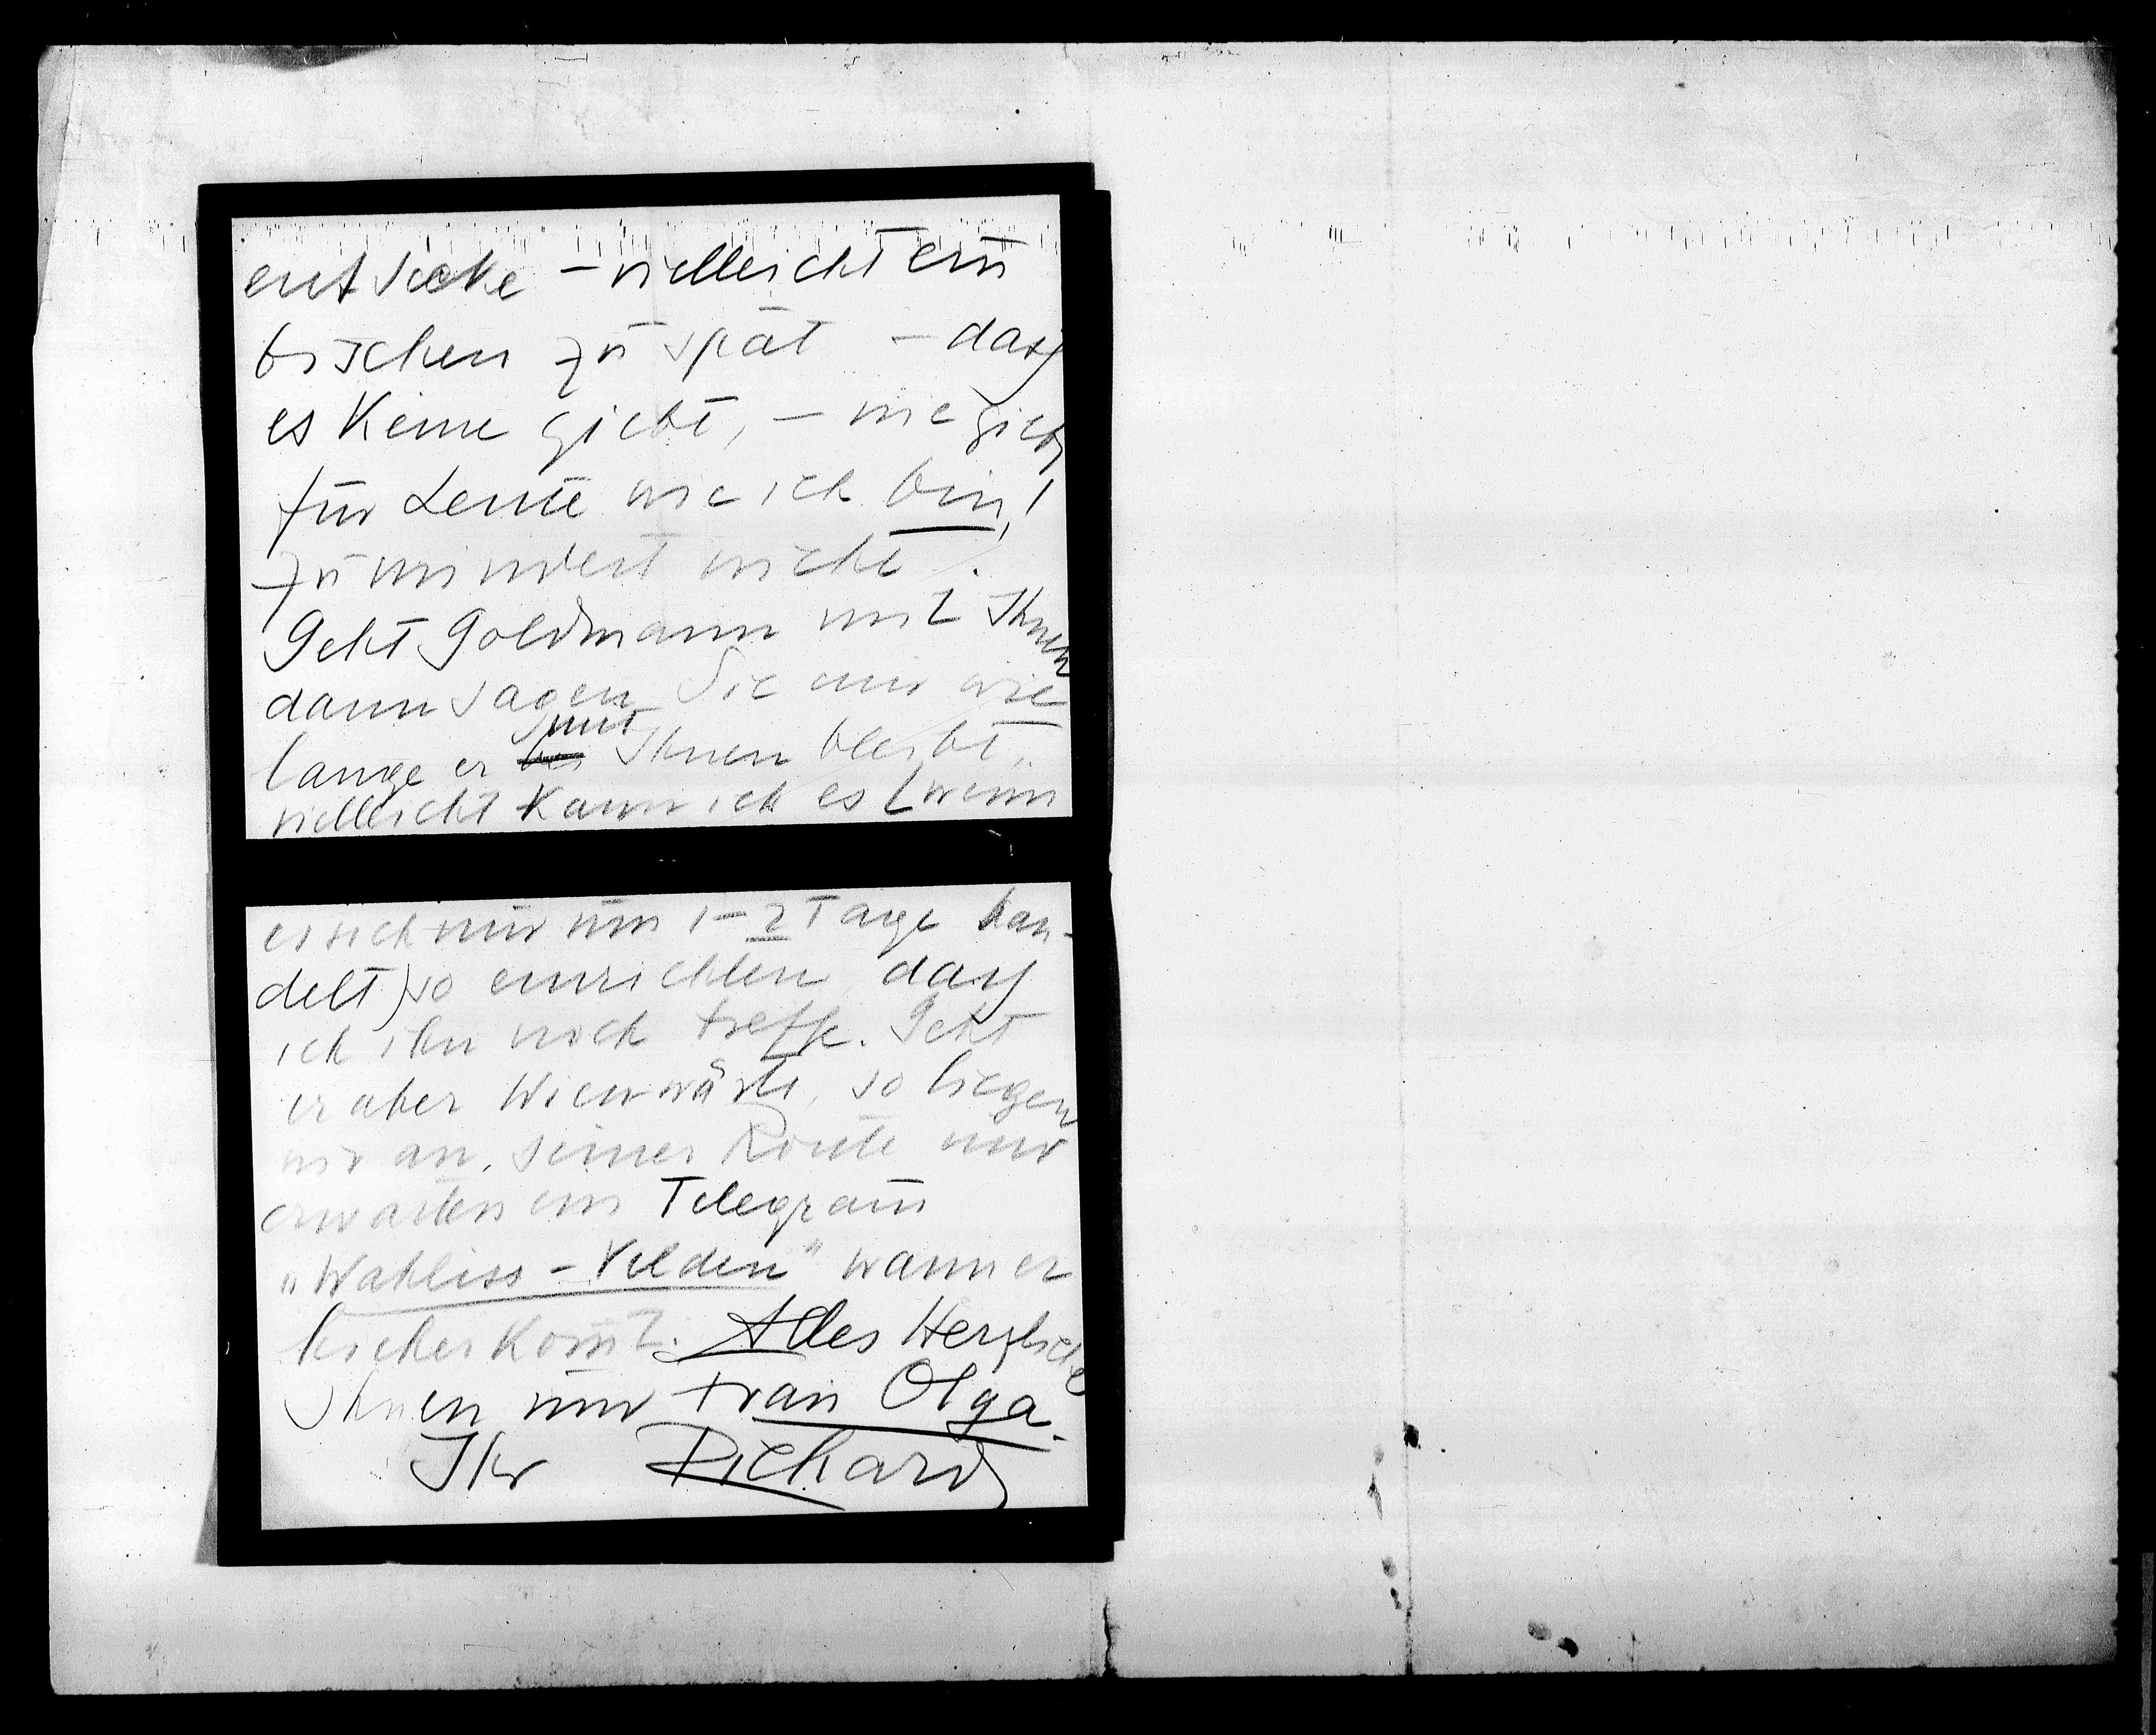 entdecke – vielleicht ein
bischen zu spät – dass
es Keine giebt, – nie giebt,
für Leute wie ich bin,!
zumindest nicht.
Geht Goldmann mit Ihnen
dann sagen Sie mir wie
lange er bei mit Ihnen bleibt,
vielleicht Kann ich es (wenn
es sich nur um 1–2 Tage han-
delt) so einrichten dass
ich ihn noch treffe. Geht
er aber Wienwärts, so liegen
wir an seiner Route und
erwarten ein Telegram̄
„Wahliss – Velden" wann er
hieher Kom̄t. Alles Herzliche
Ihnen und Frau Olga.
Ihr Richard